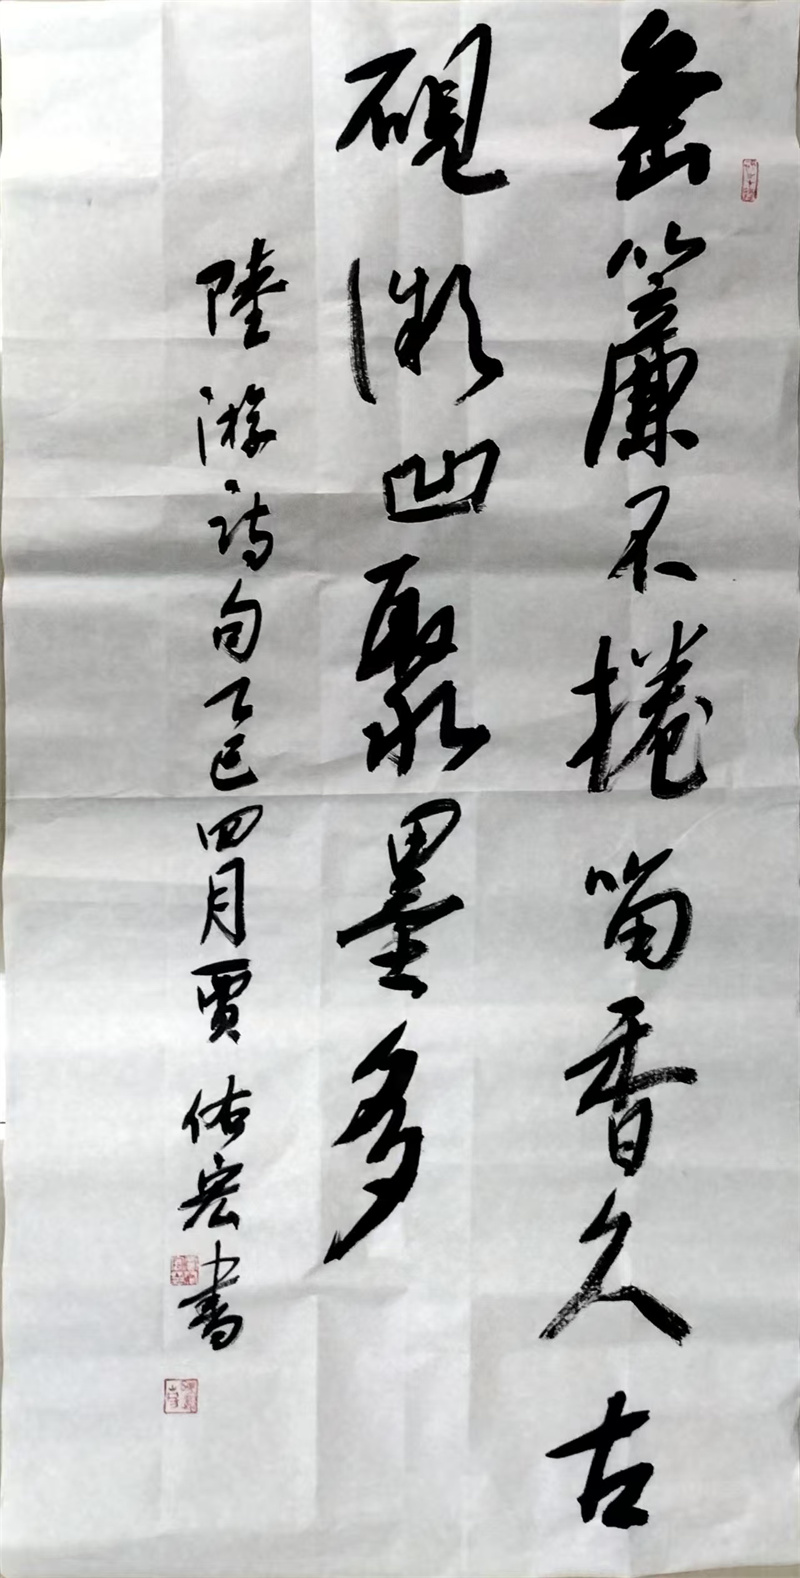 垂簾不捲留香久古
硯微凹聚墨多
陸游詩句乙巳四月賈佑宏書